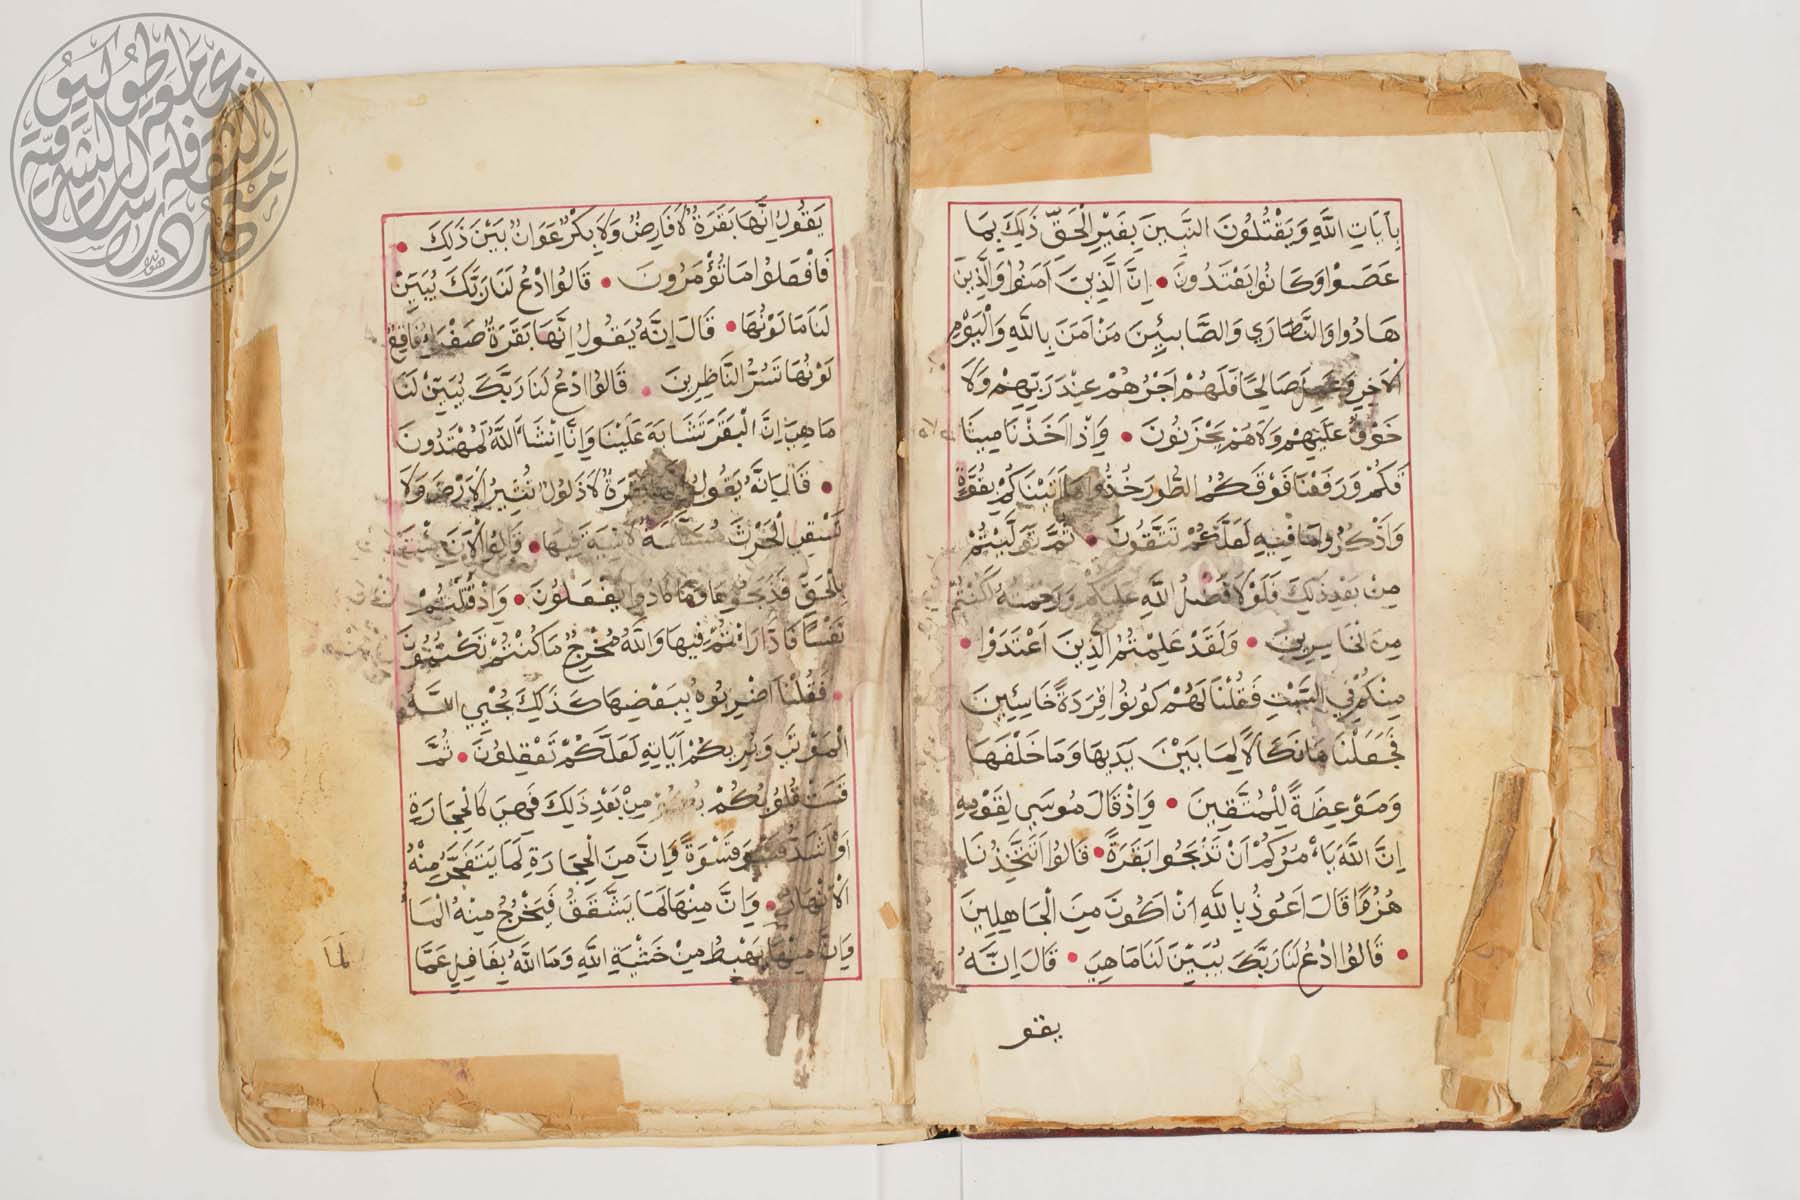 بِآيَاتِ اللَّهِ وَيَقْتُلُونَ النَّبِيِّنَ بِغَيْرِ الْحَقِّ ذَلِكَ بِمَا
عَصَوْا وَكَانُوا يَعْتَدُونَ • اِنَّ الَّذِينَ اَمَنُوا وَالَّذِينَ
هَادُوا وَالنَّصَارَي وَالصَّابِئِنَ مَنْ اَمَنَ بِاللَّهِ وَالْيَوْمِ
الْاَخِرِ وَعَمِلَ صَالِحًا فَلَهُمْ اَجْرُهُمْ عِنْدَ رَبِّهِمْ وَلَا
خَوْفٌ عَلَيْهِمْ وَلَا هُمْ يَحْزَنُونَ • وَاِذْ اَخَذْنَا مِيثَا
قَكُمْ وَرَفَعْنَا فَوْقَكُمُ الطُّورَ خُذُوا مَا اَتَيْنَاكُمْ بِقُوَّةٍ
وَاذْكُرُوا مَا فِيهِ لَعَلَّكُمْ تَتَّقُونَ • ثُمَّ تَوَلَّيْتُمْ
مِنْ بَعْدِ ذَلِكَ فَلَوْلَا فَضْلُ اللَّهِ عَلَيْكُمْ وَرَحْمَتُهُ لَكُنْتُمْ
مِنَ الْخَاسِرِينَ • وَلَقَدْ عَلِمْتُمُ الَّذِينَ اعْتَدَوْا •
مِنْكُمْ فِي السَّبْتِ فَقُلْنَا لَهُمْ كُونُوا قِرَدَةً خَاسِئِينَ
فَجَعَلْنَاهَا نَكَالًا لِمَا بَيْنَ يَدَيْهَا وَمَا خَلْفَهَا
وَمَوْعِظَةً لِلْمُتَّقِينَ • وَاِذْ قَالَ مُوسَي لِقَوْمِهِ
اِنَّ اللَّهَ يَاْمُرُكُمْ اَنْ تَذْبَحُوا بَقَرَةً • قَالُوا اَتَتَّخِذُنَا
هُزُوًا قَالَ اَعُوذُ بِاللَّهِ اَنْ اَكُونَ مِنَ الْجَاهِلِينَ
• قَالُوا ادْعُ لَنَا رَبَّكَ يُبَيِّنْ لَنَا مَا هِيَ • قَالَ اِنَّهُ
يقو
يَقُولُ اِنَّهَا بَقَرَةٌ لَا فَارِضٌ وَلَا بِكْرٌ عَوَانٌ بَيْنَ ذَلِكَ •
فَافْعَلُوا مَا تُؤْمَرُونَ • قَالُوا ادْعُ لَنَا رَبَّكَ يُبَيِّنْ
لَنَا مَا لَوْنُهَا • قَالَ اِنَّهُ يَقُولُ اِنَّهَا بَقَرَةٌ صَفْرَاءُ فَاقِعٌ
لَوْنُهَا تَسُرُّ النَّاظِرِينَ • قَالُوا ادْعُ لَنَا رَبَّكَ يُبَيِّنْ لَنَا
مَا هِيَ اِنَّ الْبَقَرَ تَشَابَهَ عَلَيْنَا وَاِنَّا اِنْشَاءَ اللَّهُ لَمُهْتَدُونَ
• قَالَ اِنَّهُ يَقُولُ بَقَرَةٌ لَا ذَلُولٌ تُثِيرُ الْاَرْضَ وَلَا
تَسْقِي الْحَرْثَ مُسَلَّمَةٌ لَا شِيَةَ فِيهَا • قَالُوا الْاٰنَ جِئْتَ
بِالْحَقِّ فَذَبَحُوهَا وَمَا كَادُوا يَفْعَلُونَ • وَاِذْ قَتَلْتُمْ
نَفْسًا فَادَّارَاْتُمْ فِيهَا وَاللَّهُ مُخْرِجٌ مَا كُنْتُمْ تَكْتُمُونَ
• فَقُلْنَا اضْرِبُوهُ بِبَعْضِهَا كَذَلِكَ يُحْيِي اللَّهُ
الْمَوْتَي وَيُرِيكُمْ اَيَاتِهِ لَعَلَّكُمْ تَعْقِلُونَ • ثُمَّ
قَسَتْ قُلُوبُكُمْ مِنْ بَعْدِ ذَلِكَ فَهِيَ كَالْحِجَارَةِ
اَوْ اَشَدُّ قَسْوَةً وَاِنَّ مِنَ الْحِجَارَةِ لَمَا يَتَفَجَّرُ مِنْهُ
الْاَنْهَارُ • وَاِنَّ مِنْهَا لَمَا يَشَّقَّقُ فَيَخْرُجُ مِنْهُ الْمَا
وَاِنَّ مِنْهَا لَمَا يَهْبِطُ مِنْ خَشْيَةِ اللَّهِ وَمَا اللَّهُ بِغَافِلٍ عَمَّا
لَمَا